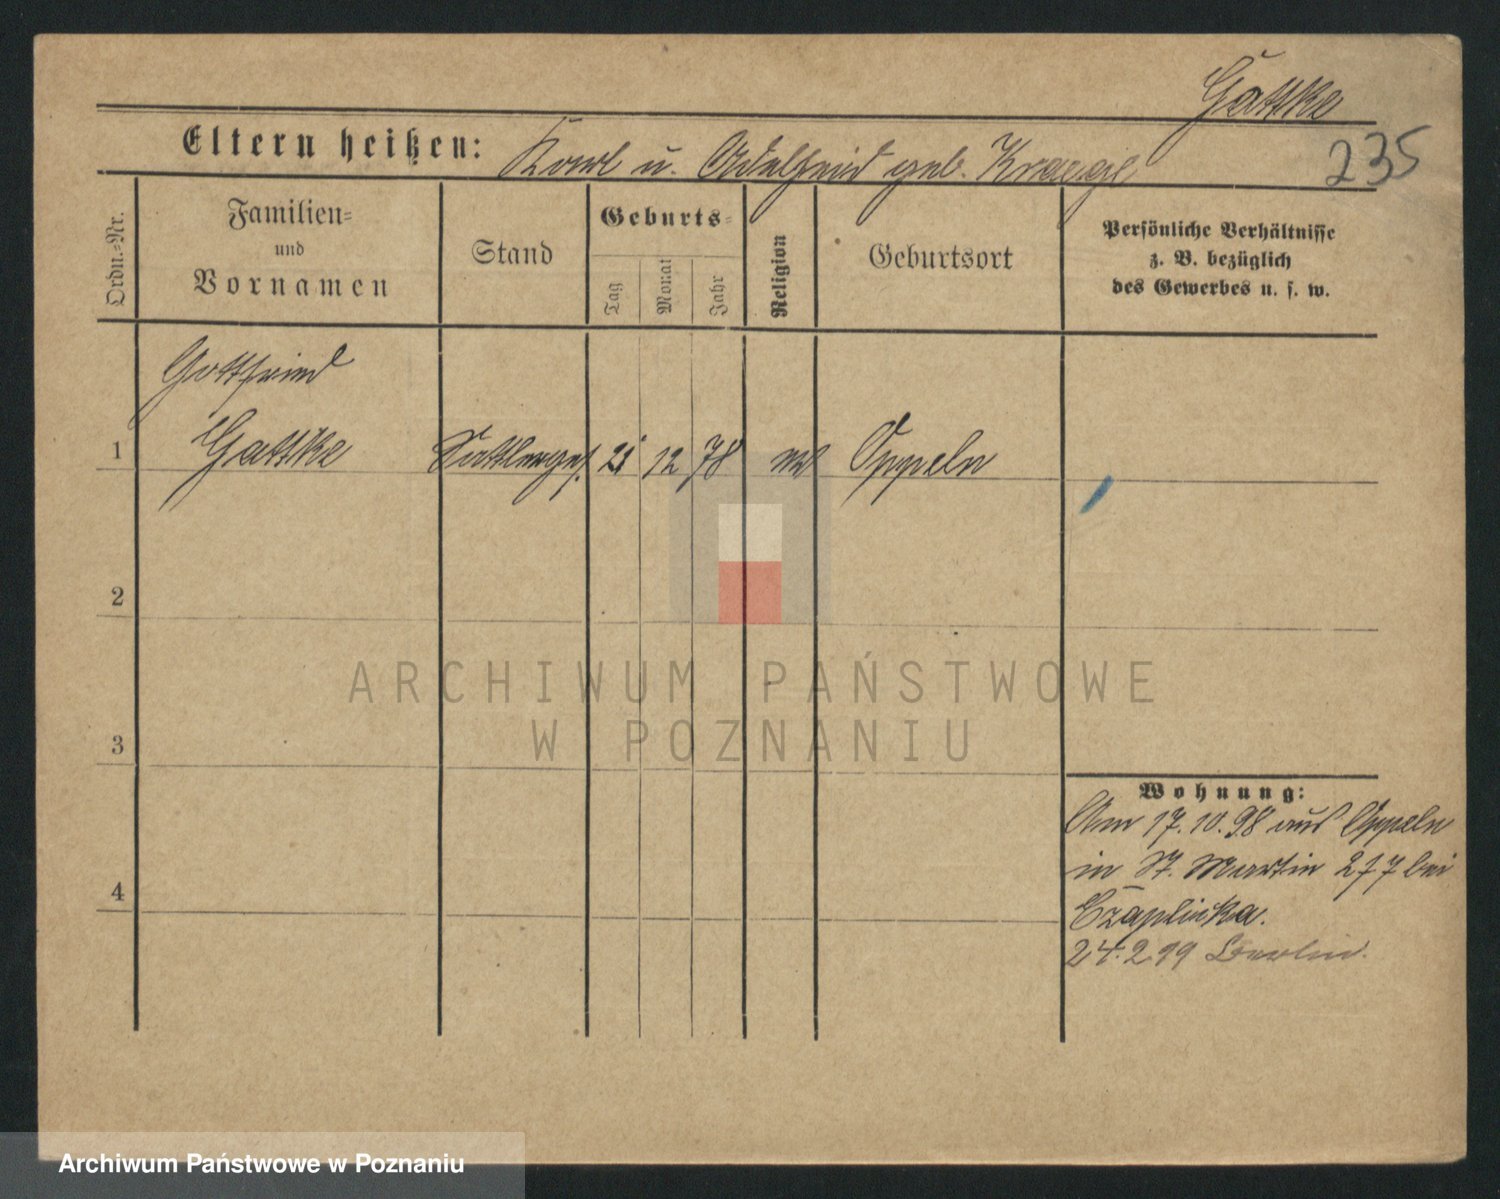 Gattke
235
Eltern heißen: Karl u. Adelheid geb. Kraege
Ordn.-Nr.
Familien-
und
Vornamen
Stand
Geburts-
Tag
Monat
Jahr
Religion
Geburtsort
Persönliche Verhältnisse
z. B. bezüglich
des Gewerbes u. s. w.
Gottfried
1 Gattke Sattlerges. 21 12 78 ev Oppeln
2
3
4
Wohnung:
Am 17.10.98 aus Oppeln
in St. Martin 277 bei
Czaplicka.
24.2.99 Berlin.
ARCHIWUM PAŃSTWOWE
W POZNANIU
Archiwum Państwowe w Poznaniu